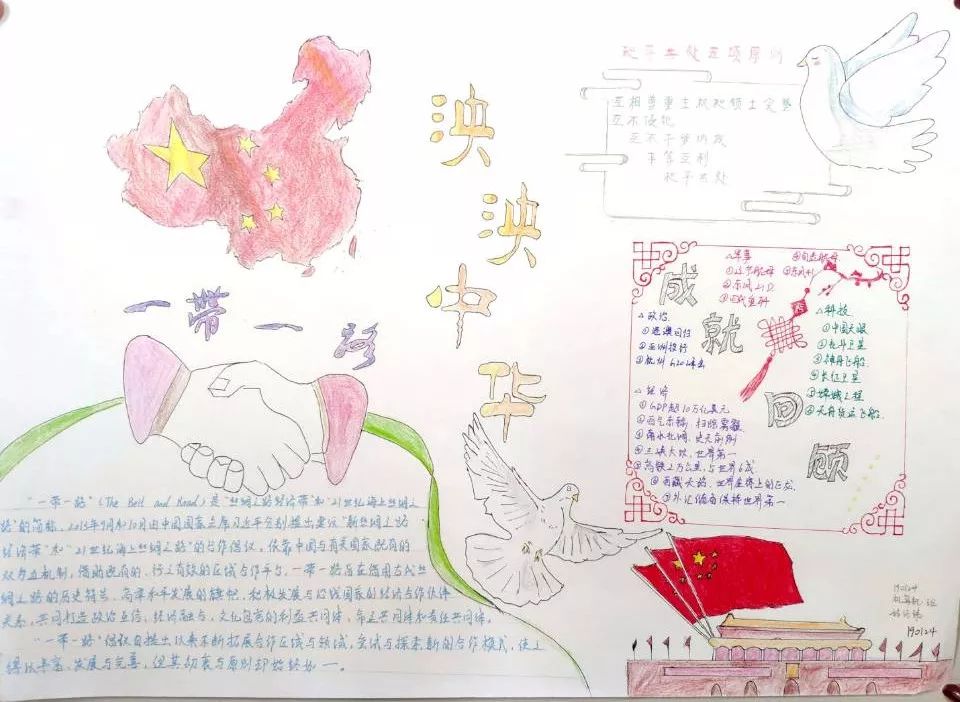 泱泱中华
一带一路
和平共处五项原则
互相尊重主权和领土完整
互不侵犯
互不干涉内政
平等互利
和平共处
成就回顾
△军事
①辽宁航母
②东风21D
③四代重歼
④国产航母
⑤东风41
△政治
①港澳回归
②亚洲投行
③杭州G20峰会
△科技
①中国天眼
②北斗卫星
③神舟飞船
④长征卫星
⑤嫦娥工程
⑥天舟货运飞船
△经济
①GDP超10万亿美元
②西气东输,扫除雾霾
③南水北调,史无前例
④三峡大坝,世界第一
⑤高铁2万公里,占世界6成
⑥西藏天路,世界屋脊上的巨龙
⑦外汇储备保持世界第一
"一带一路"(The Belt and Road)是"丝绸之路经济带"和"21世纪海上丝绸之
路"的简称,2013年9月和10月由中国国家主席习近平分别提出建设"新丝绸之路
经济带"和"21世纪海上丝绸之路"的合作倡议。依靠中国与有关国家既有的
双多边机制,借助既有的、行之有效的区域合作平台,一带一路旨在借用古代丝
绸之路的历史符号,高举和平发展的旗帜,积极发展与沿线国家的经济合作伙伴
关系,共同打造政治互信、经济融合、文化包容的利益共同体、命运共同体和责任共同体。
"一带一路"倡议自提出以来不断拓展合作区域与领域,尝试与探索新的合作模式,使之
得以丰富、发展与完善,但其初衷与原则却始终如一。
190124
190124